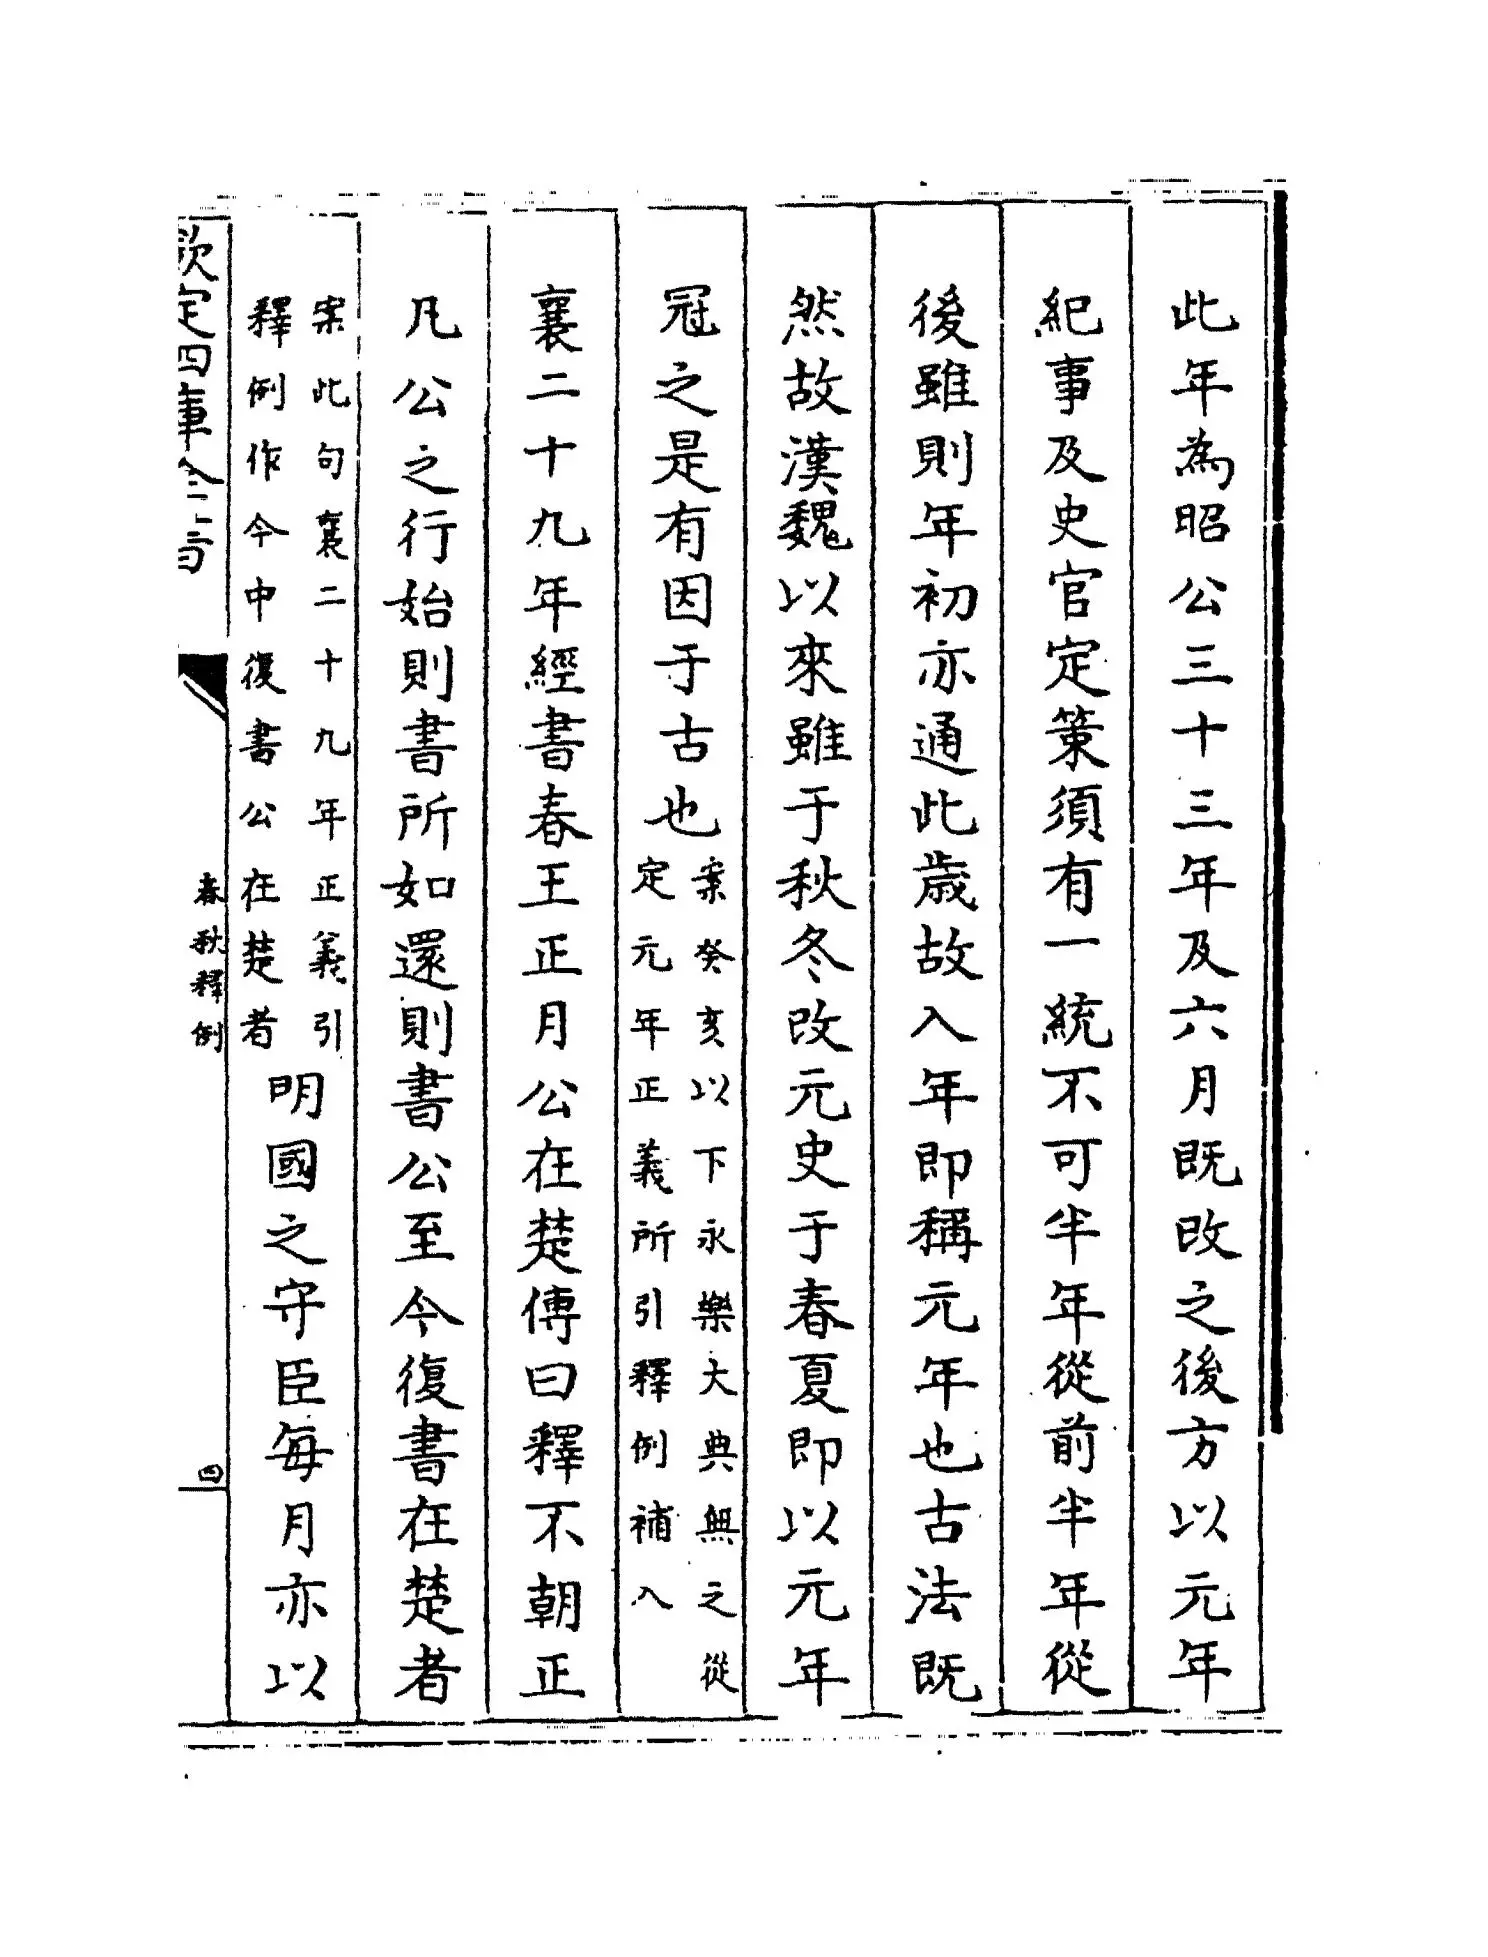 此年為昭公三十三年及六月既改之後方以元年
紀事及史官定策須有一統不可半年從前半年從
後雖則年初亦通此歳故入年即稱元年也古法既
然故漢魏以來雖于秋冬改元史于春夏即以元年
冠之是有因于古也
案癸亥以下永樂大典無之從
定元年正義所引釋例補入
襄二十九年經書春王正月公在楚傳曰釋不朝正
凡公之行始則書所如還則書公至今復書在楚者
案此句襄二十九年正義引
釋例作今中復書公在楚者
明國之守臣每月亦以
欽定四庫全書
春秋釋例
四